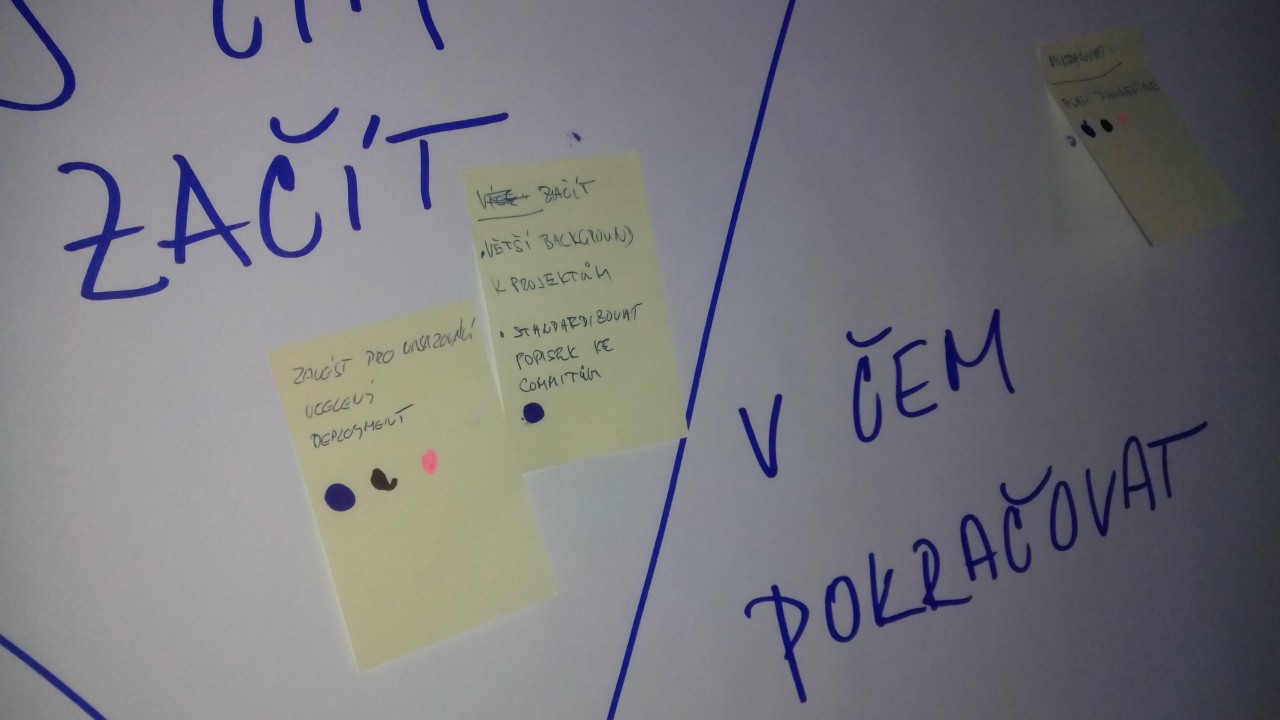 S ČÍM
ZAČÍT
ZAČÍT
• VĚTŠÍ BACKGROUND
K PROJEKTŮM
• STANDARDIZOVAT
POPISEK KE
COMMITŮM
ZAVÉST PRO
UCELENÝ
DEPLOYMENT
POKRAČOVAT
V ČEM
POKRAČOVAT